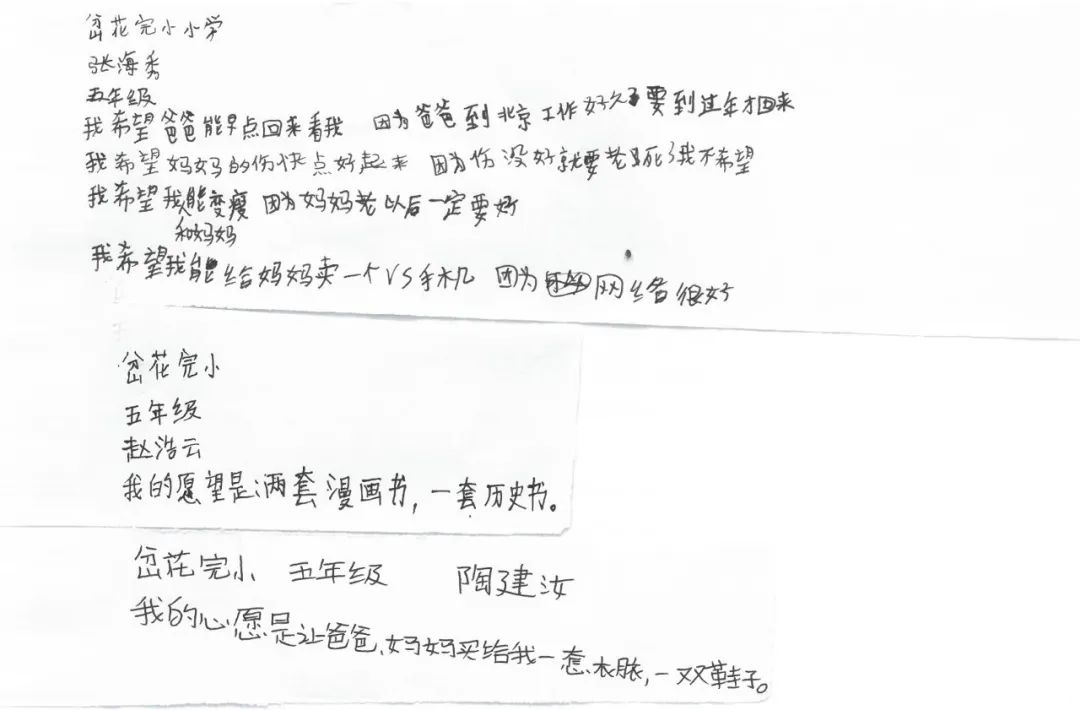 岔花完小小学
张海秀
五年级
我希望爸爸能早点回来看我 因为爸爸到北京工作好久了要到过年才回来
我希望妈妈的伤快点好起来 因为伤没好就要 死了我不希望
我希望我能变瘦 因为妈妈 以后一定要好
和妈妈
我希望我能给妈妈卖一个VS手机 因为 网络很好
岔花完小
五年级
赵浩云
我的愿望是两套漫画书，一套历史书。
岔花完小 五年级 陶建汝
我的心愿是让爸爸、妈妈买给我一套衣服，一双鞋子。